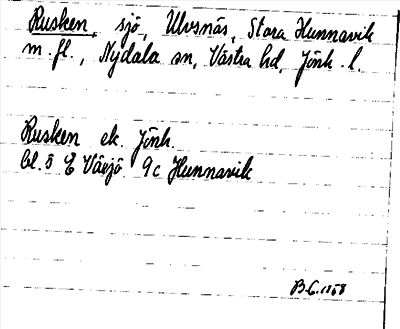 Rusken, sjö, Ulvsnäs, Stora Hunnavik
m.fl., Nydala sn, Västra hd, Jönk. l.
Rusken ek. Jönk.
bl. 5 E Växjö 9c Hunnavik
B.G. 1958